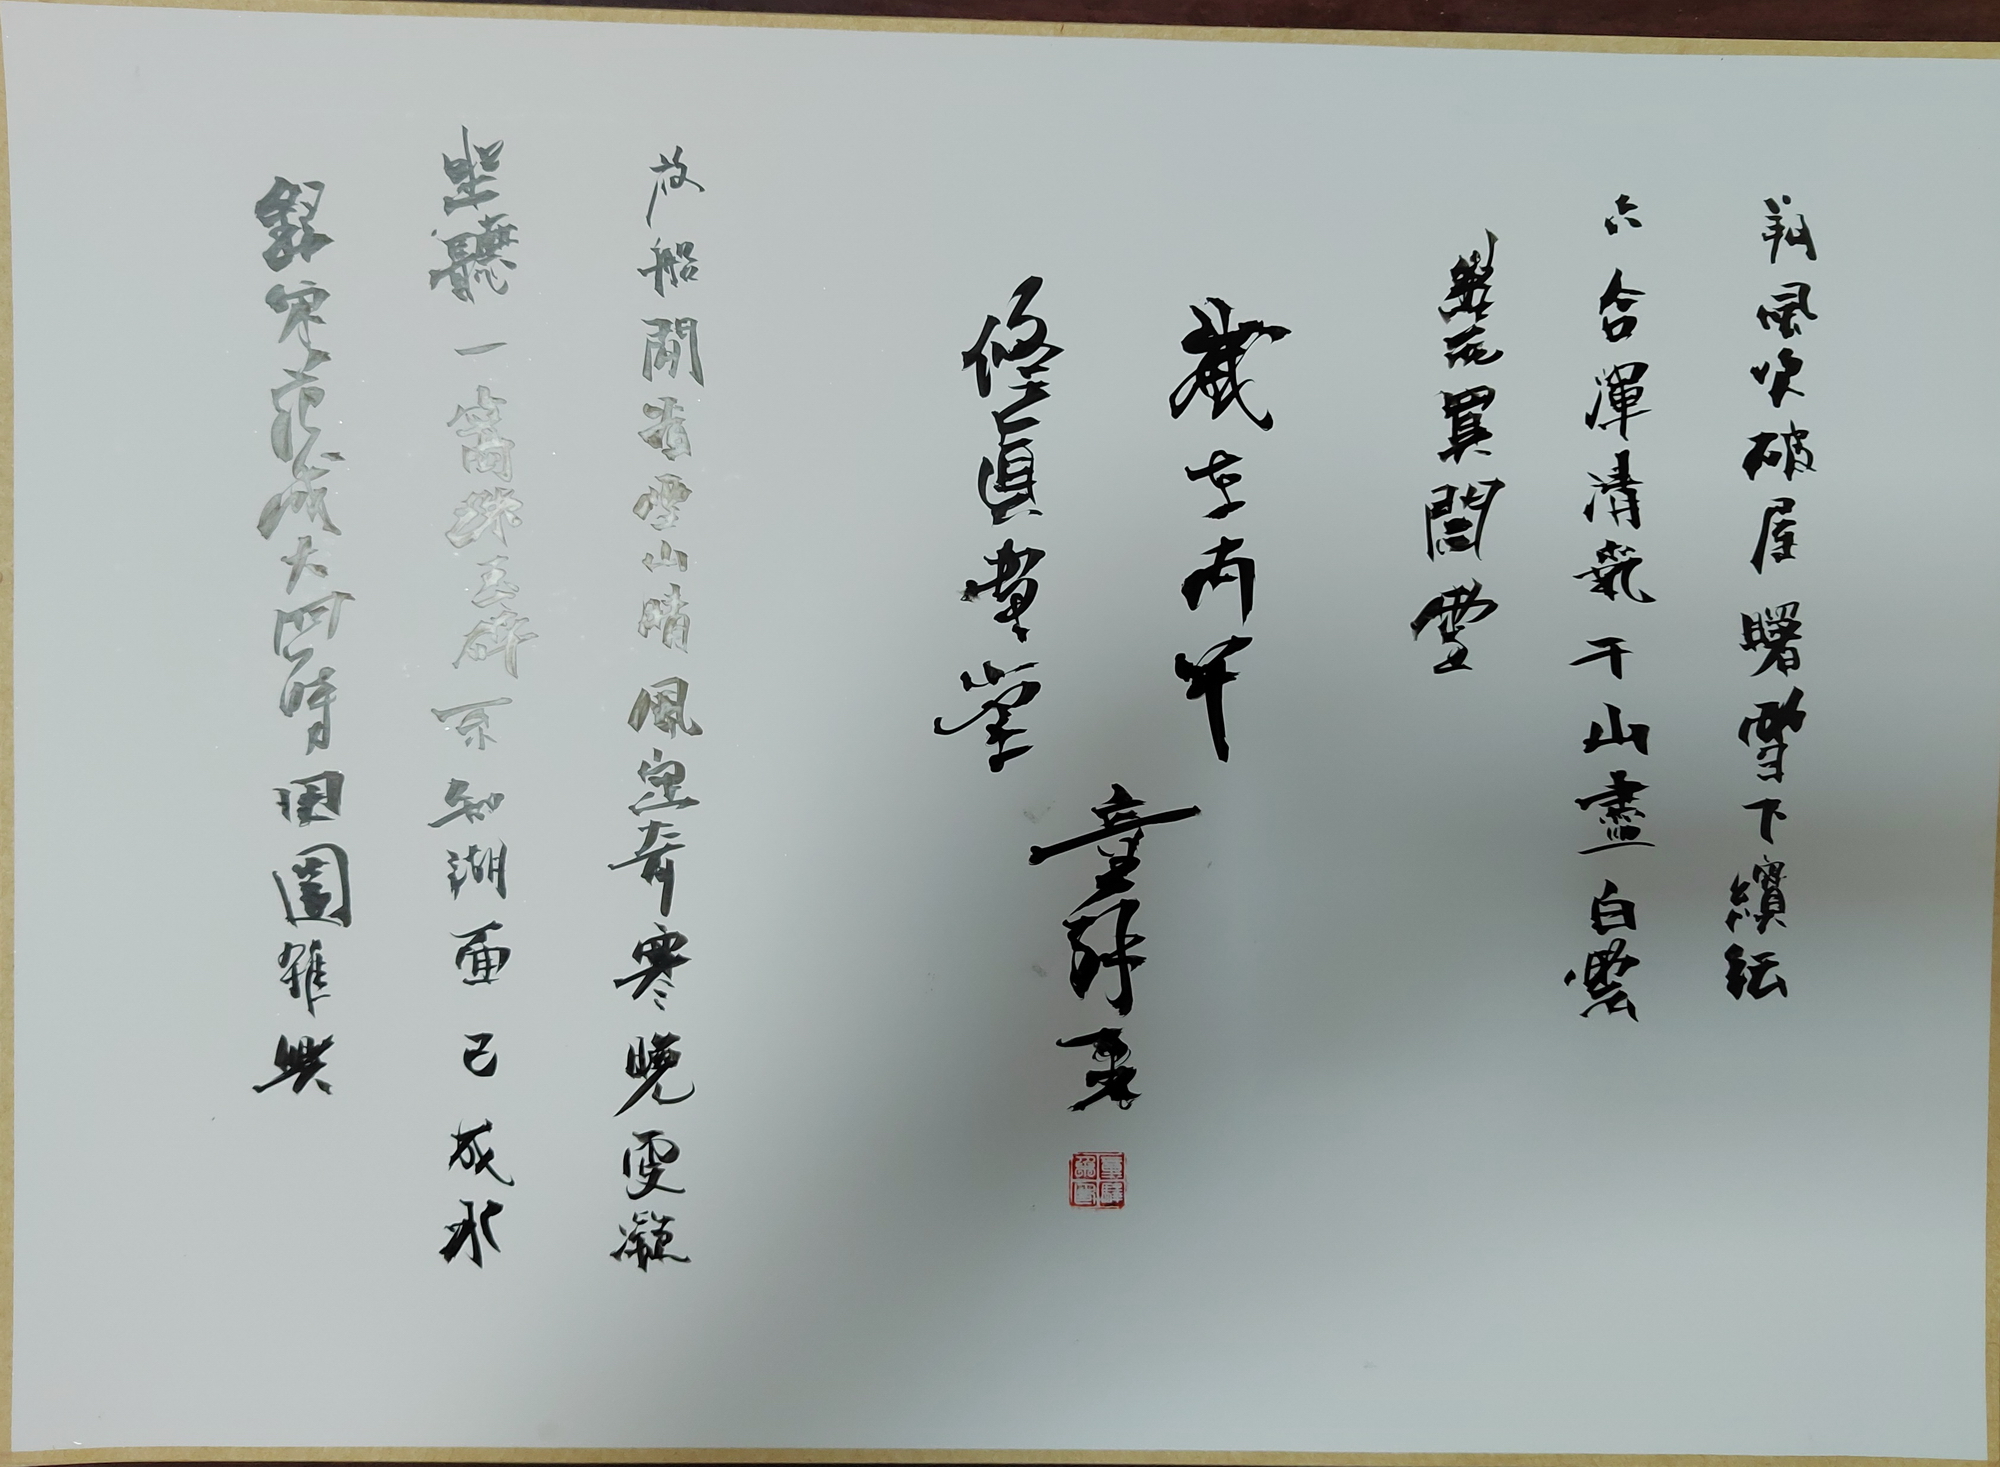 朔風吹破屋曙雪下繽紜
六合渾清氣千山盡白雲
雪
歲在丙午
悠真堂
童
放船閒看雪山晴風定奇寒晚更凝
坐聽一篙珠玉碎不知湖面已成冰
錄宋范成大四時田園雜興